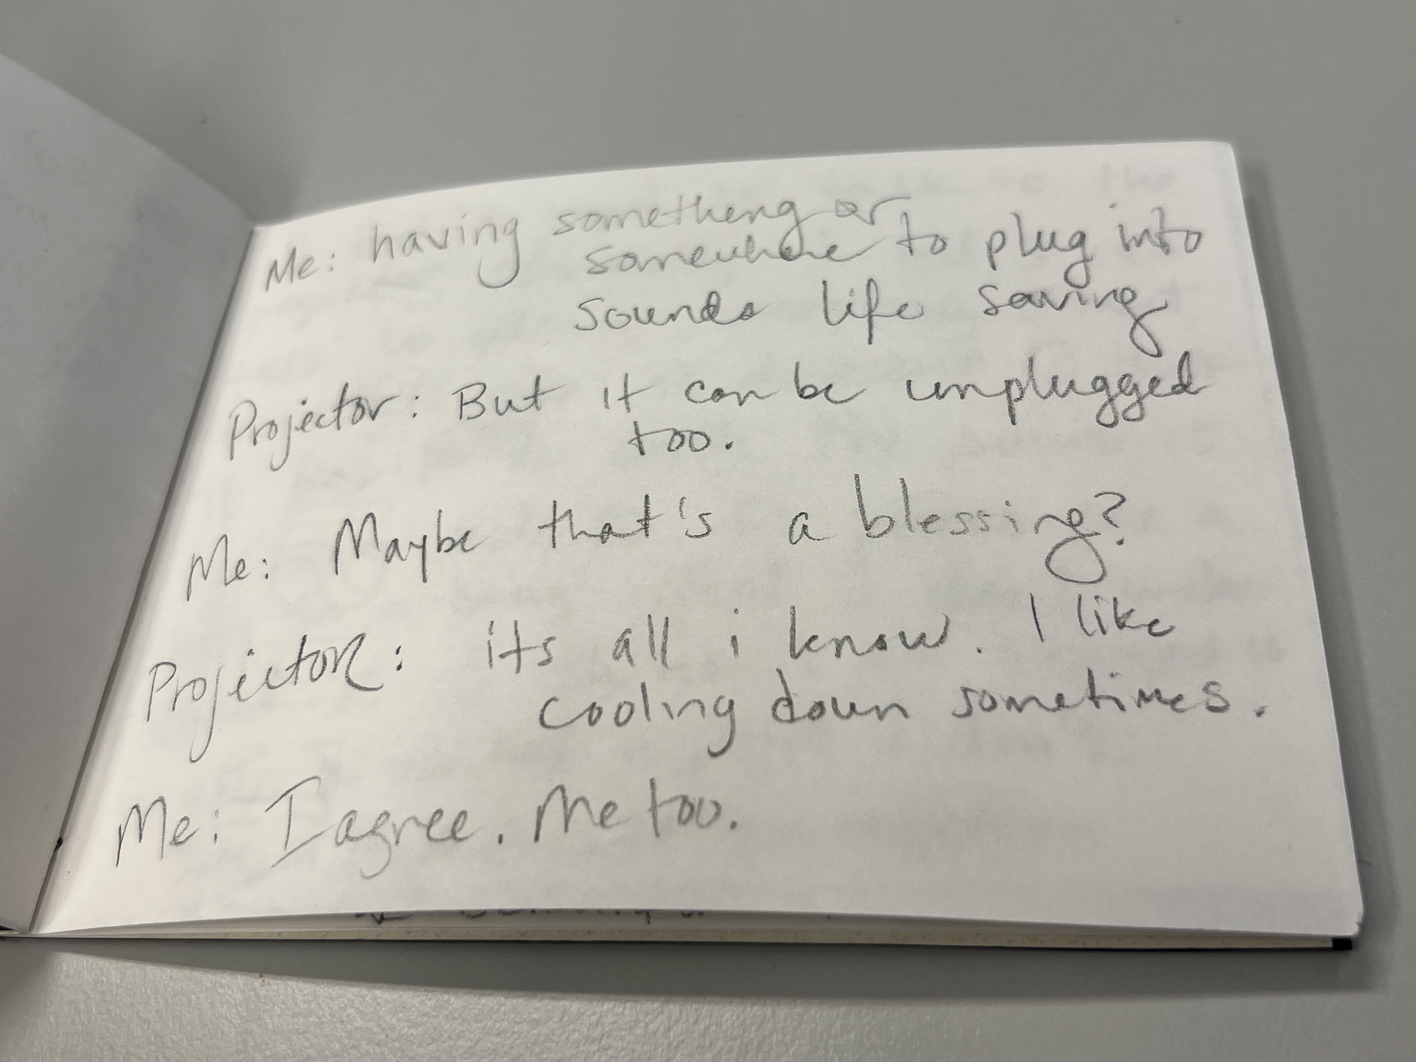 Me: having something or
somewhere to plug into
sounds life saving
Projector: But it can be unplugged
too.
Me: Maybe that's a blessing?
Projector: its all i know. I like
cooling down sometimes.
Me: I agree. Me too.